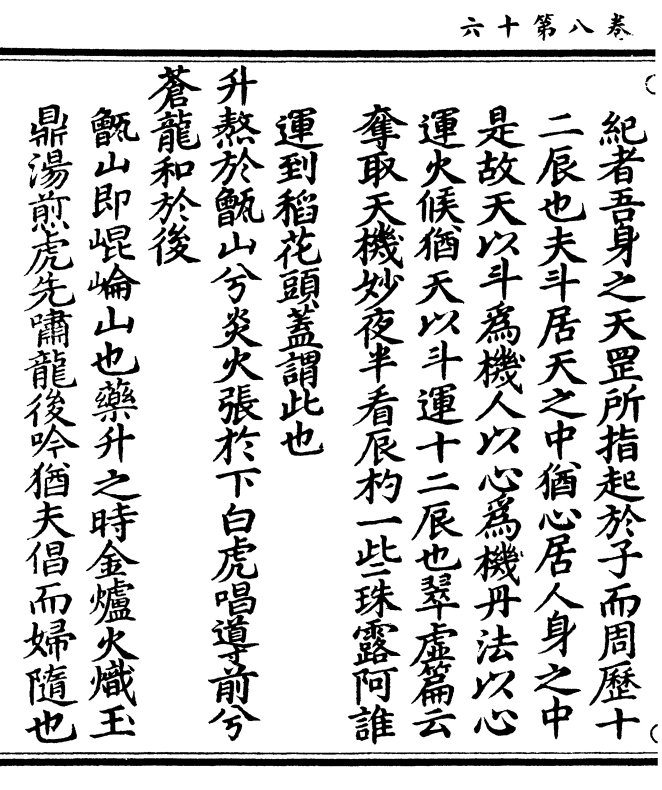 卷八第十六
紀者吾身之天罡所指起於子而周歷十
二辰也夫斗居天之中猶心居人身之中
是故天以斗爲機人以心爲機丹法以心
運火候猶天以斗運十二辰也翠虛篇云
奪取天機妙夜半看辰杓一些珠露阿誰
運到稻花頭蓋謂此也
升熬於甑山兮炎火張於下白虎唱導前兮
蒼龍和於後
甑山即崐崘山也藥升之時金爐火熾玉
鼎湯煎虎先嘯龍後吟猶夫倡而婦隨也